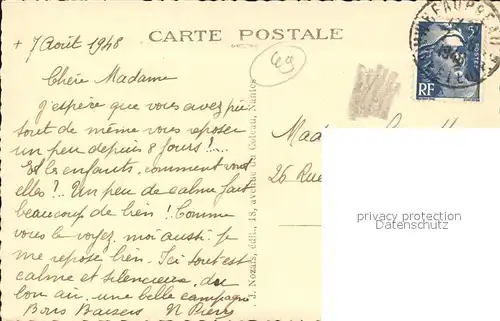 + 7 Août 1948
CARTE POSTALE
69
Chère Madame
j'espère que vous avez pu
tout de même vous reposer
un peu depuis 8 jours !...
Et les enfants, comment vont
elles ?.. Un peu de calme fait
beaucoup de bien ! Comme
vous le voyez, moi aussi je
me repose bien. Ici tout est
calme et silencieux, du
bon air, une belle campagne
Bons Baisers
J. Nozais, édit., 18, avenue du Coteau, Nantes
Mada
26 Rue
RF
POSTES
privacy protection
Datenschutz